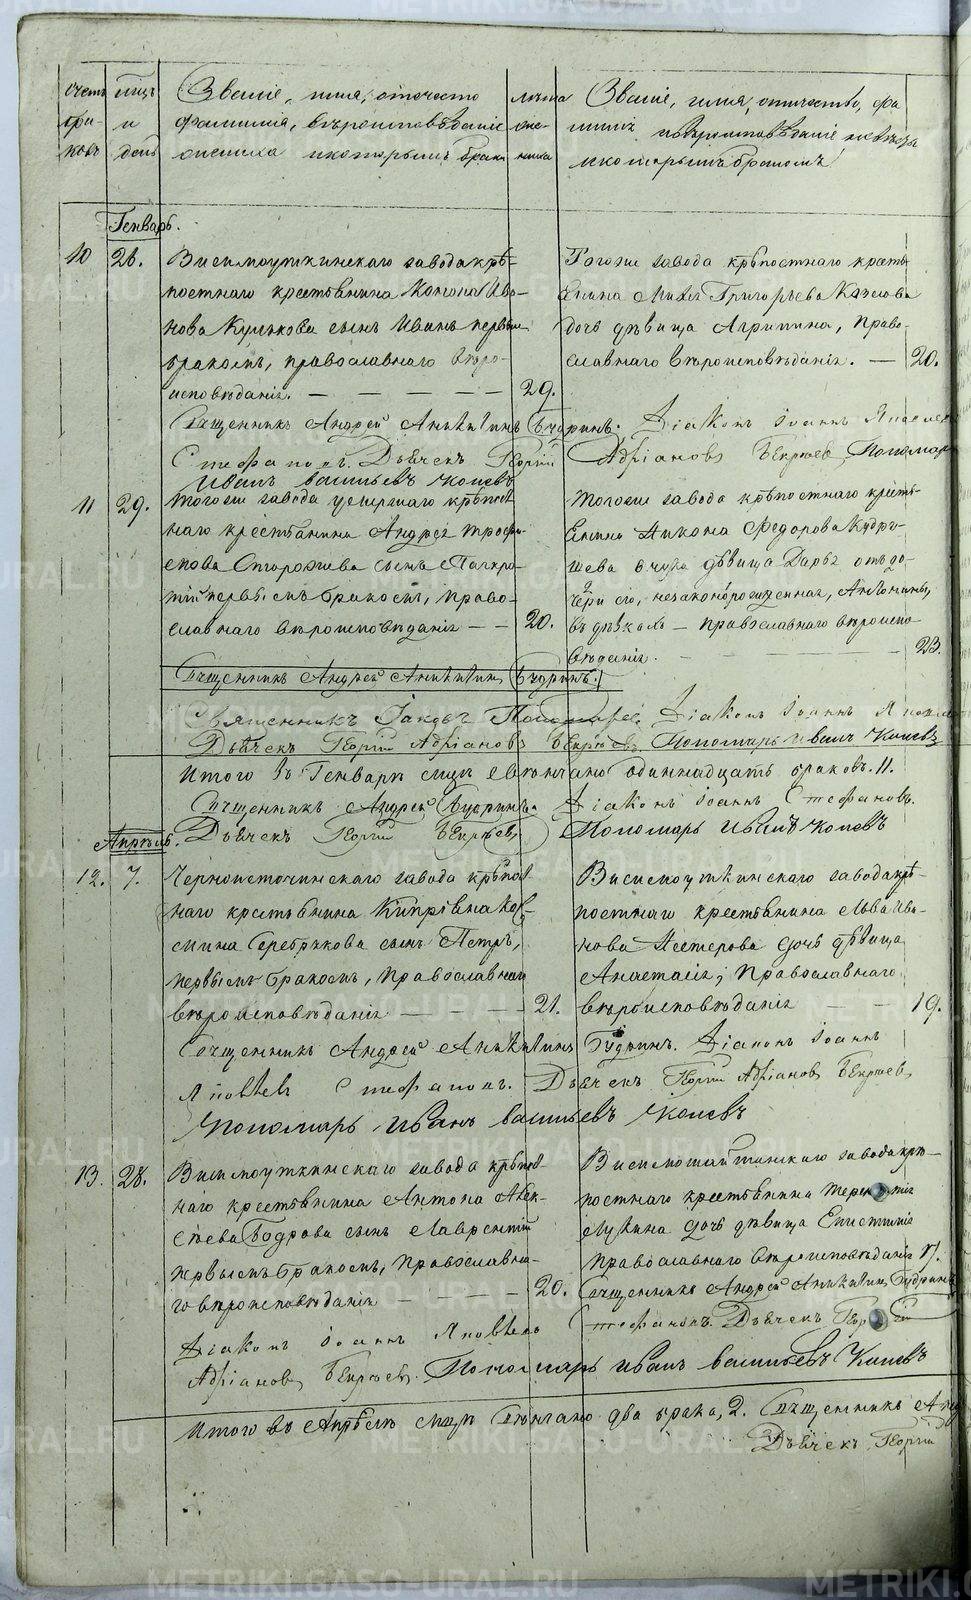 счетъ
бра-
ковъ
мцъ
и
день
Званіе, имя, отчество
фамилія, вѣроисповѣданіе
жениха и которымъ бракомъ
лѣта
же-
ниха
Званіе, имя, отчество, фа
милія и вѣроисповѣданіе невѣсты
и которымъ бракомъ
Генварь.
10
26.
Висимоуткинскаго завода крѣ-
постнаго крестьянина Конона Ива-
нова Куликова сынъ Иванъ первымъ
бракомъ, православнаго вѣро-
исповѣданія. — — — — —
29.
Тогоже завода крѣпостнаго кресть
янина Григорьева
дочь дѣвица Агрипина, Право-
славнаго вѣроисповѣданія. —
20.
Сщщенникъ Андрей Аникитинъ Бударинъ. Діаконъ Іоаннъ
Стефановъ. Дьячекъ Георгій Адріановъ Бекряевъ, Пономарь
Иванъ Васильевъ Копевъ
11
29.
Тогоже завода умершаго крѣпост
наго крестьянина Андрея Трофи
мова Сторожева сынъ Панкра-
тій первымъ бракомъ, право-
славнаго вѣроисповѣданія — —
20.
Тогоже завода крѣпостнаго кресть-
янина Федорова Кудря-
шева внука дѣвица Дарья отъ до-
чери его, незаконорожденная, Антонины,
въ дѣвкахъ — Православнаго вѣроиспо-
вѣданія. — — —
23.
Сщщенникъ Андрей Аникитинъ Бударинъ.
Священникъ Іаковъ Діаконъ Іоаннъ
Дьячекъ Георгій Адріановъ Бекряевъ, Пономарь Иванъ Копевъ
Итого въ Генварѣ мцѣ вѣнчано одиннадцать браковъ. 11.
Сщщенникъ Андрей Бударинъ. Діаконъ Іоаннъ Стефановъ.
Дьячекъ Георгій Бекряевъ Пономарь Иванъ Копевъ
Апрѣль.
12.
7.
Черноисточинскаго завода крѣпост
наго крестьянина Кипріяна Кос-
мина Серебрякова сынъ Петръ,
первымъ бракомъ, Православнаго
вѣроисповѣданія — — — —
21.
Висимоуткинскаго завода крѣ-
постнаго крестьянина Льва Ива-
нова Нестерова дочь дѣвица
Анастасія; Православнаго
вѣроисповѣданія — —
19.
Сщщенникъ Андрей Аникитинъ Бударинъ. Діаконъ Іоаннъ
Яковлевъ Стефановъ. Дьячекъ Георгій Адріановъ Бекряевъ,
Пономарь Иванъ Васильевъ Копевъ
13.
28.
Висимоуткинскаго завода крѣпост
наго крестьянина Антона Алек-
сѣева Бодрова сынъ Лаврентій
первымъ бракомъ, Православна-
го вѣроисповѣданія — — — —
20.
Висимошайтанскаго завода крѣ—
постнаго крестьянина Терентія
Лукина дочь дѣвица Епистимія
Православнаго вѣроисповѣданія
Сщщенникъ Андрей Аникитинъ Бударинъ
Діаконъ Іоаннъ Яковлевъ Стефановъ. Дьячекъ Георгій
Адріановъ Бекряевъ. Пономарь Иванъ Васильевъ Копевъ
Итого въ Апрѣлѣ мцѣ вѣнчано два брака, 2. Сщщенникъ
Дьячекъ Георгій
METRIKI.GASO-URAL.RU